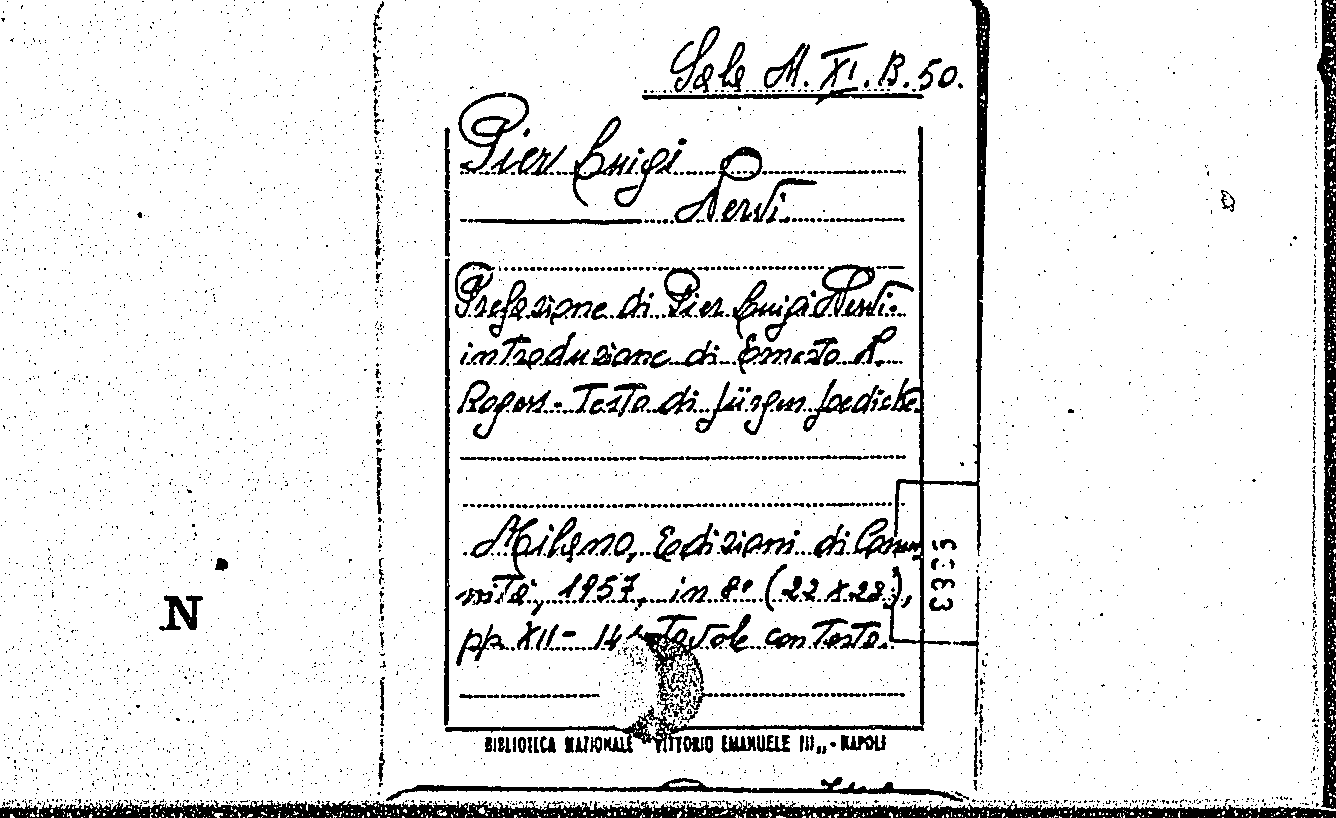 Sala M. XI. B. 50.
Pier Luigi
Nervi.
Prefazione di Pier Luigi Nervi.
introduzione di Ernesto N.
Rogers - Testo di Jürgen Joedicke.
Milano, Edizioni di Comu
nità, 1957, in 8° (22 x 28),
pp. XII - tavole con testo.
N
BIBLIOTECA NAZIONALE "VITTORIO EMANUELE III„ - NAPOLI